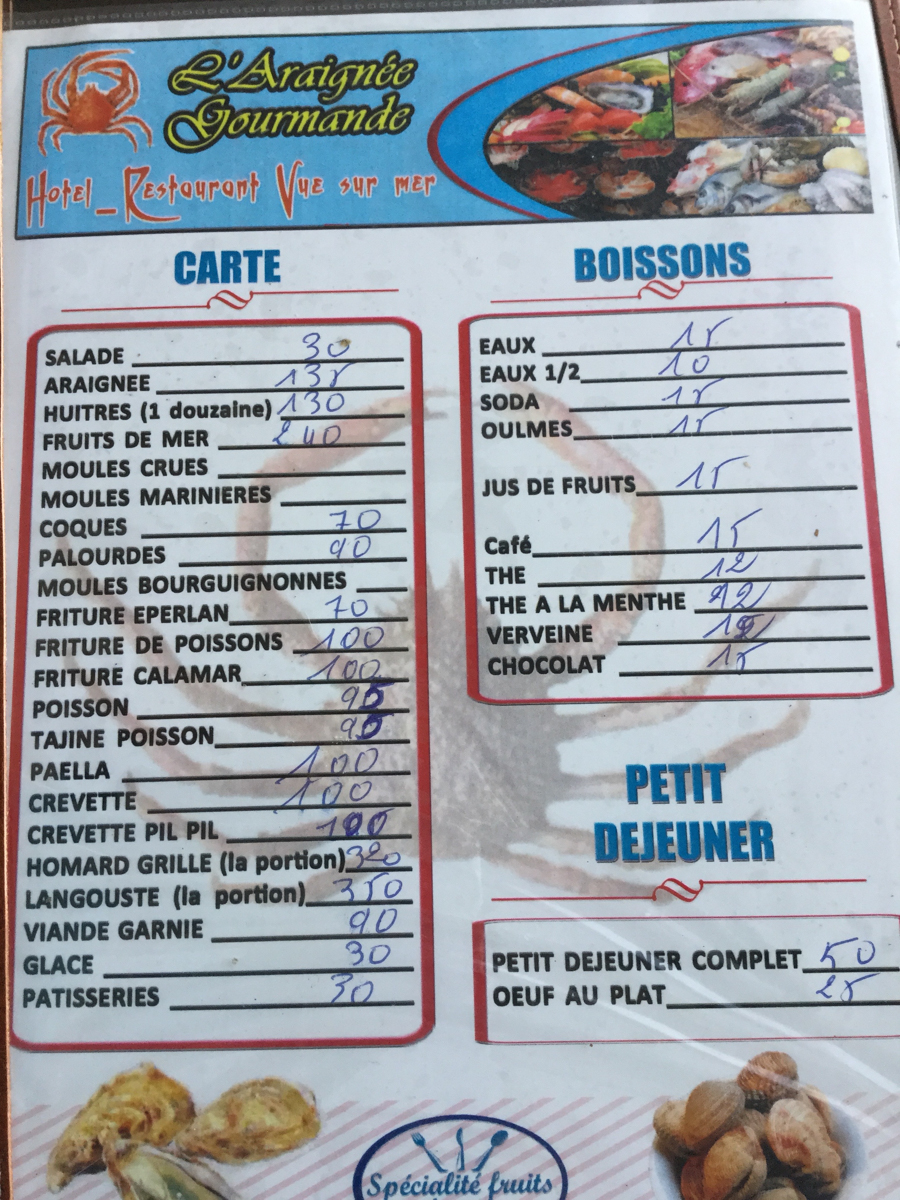 L'Araignée
Gourmande
Hotel_Restaurant Vue sur mer
CARTE
SALADE 30
ARAIGNEE 135
HUITRES (1 douzaine) 130
FRUITS DE MER 240
MOULES CRUES
MOULES MARINIERES
COQUES 70
PALOURDES 90
MOULES BOURGUIGNONNES
FRITURE EPERLAN 70
FRITURE DE POISSONS 100
FRITURE CALAMAR 100
POISSON 95
TAJINE POISSON 95
PAELLA 100
CREVETTE 100
CREVETTE PIL PIL
HOMARD GRILLE (la portion) 320
LANGOUSTE (la portion) 350
VIANDE GARNIE 90
GLACE 30
PATISSERIES 30
BOISSONS
EAUX 15
EAUX 1/2 10
SODA 15
OULMES 15
JUS DE FRUITS 15
Café 15
THE 12
THE A LA MENTHE 12
VERVEINE
CHOCOLAT 15
PETIT
DEJEUNER
PETIT DEJEUNER COMPLET 50
OEUF AU PLAT 25
Spécialité fruits